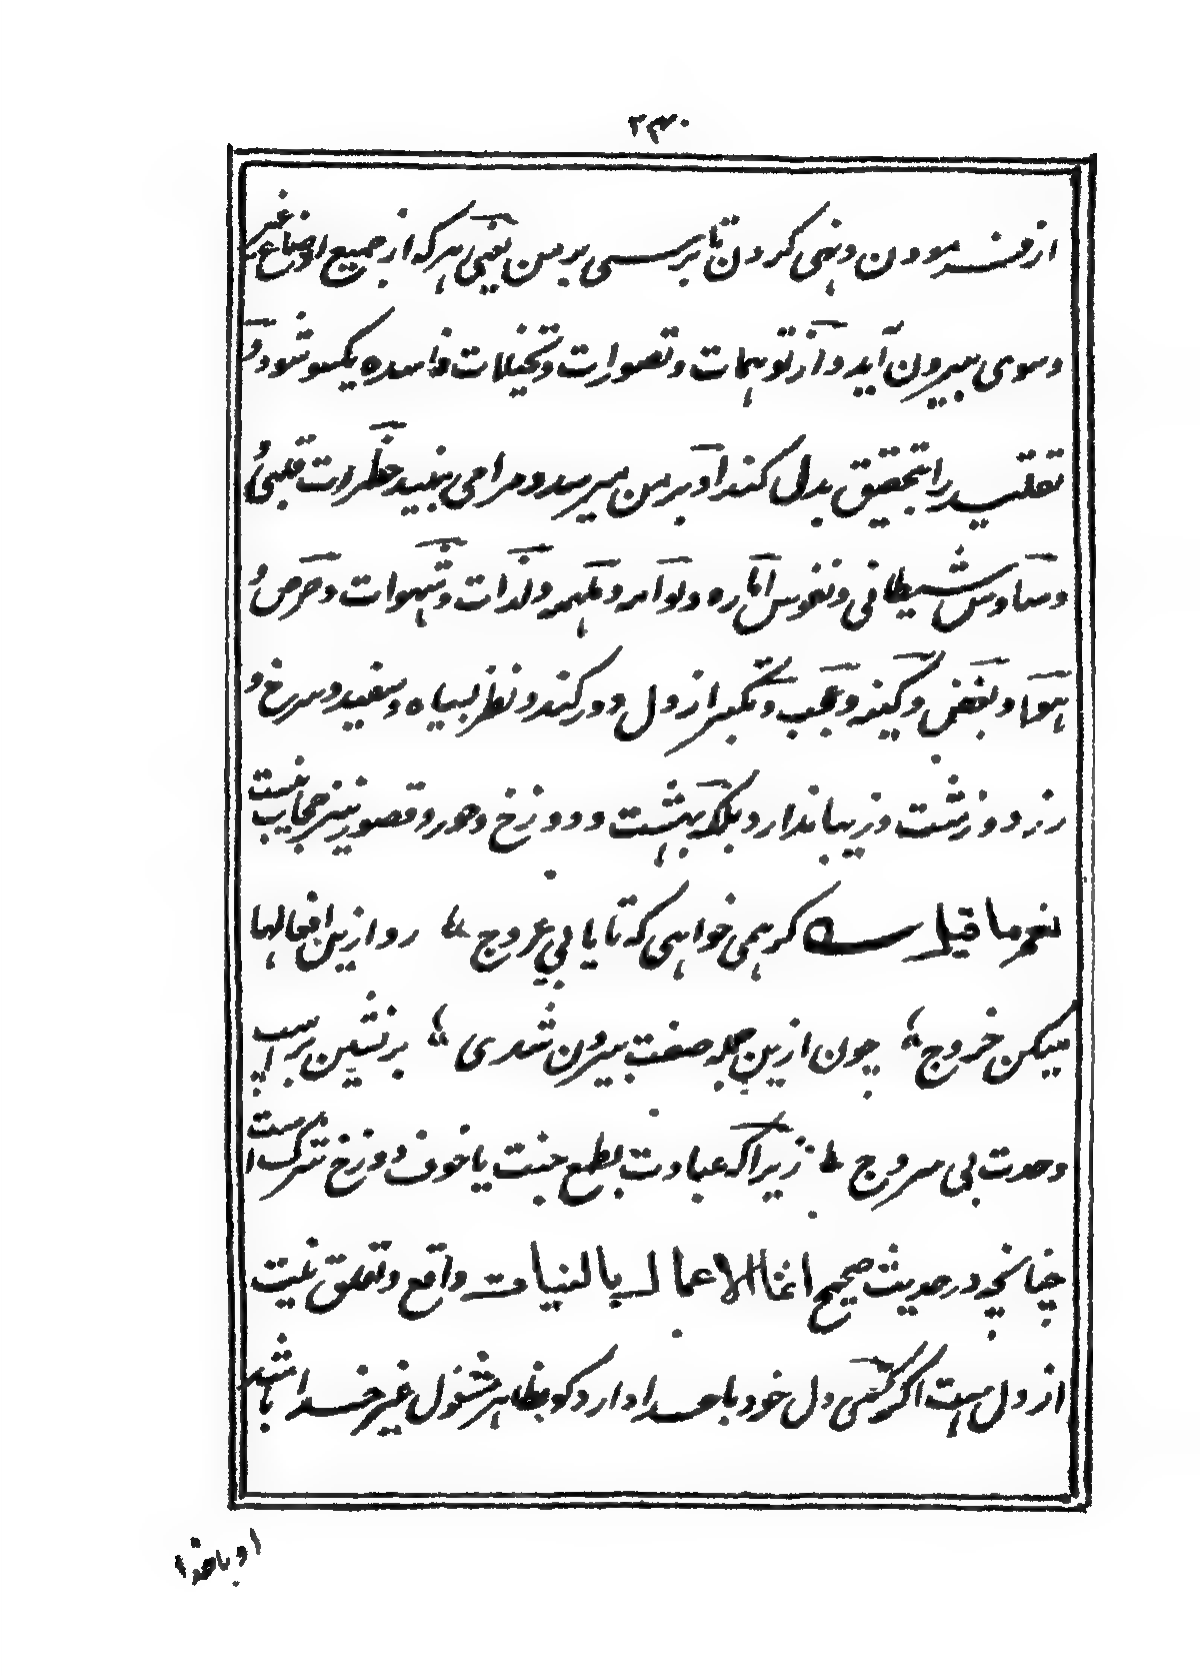 ۲۳۰
از فرمودن و نهی کردن تا برسی بر من یعنی هر که از جمیع اوضاع غیر
و سوی بیرون آید و از توهمات و تصورات و تخیلات فاسده یکسو شود و
تقلید را بتحقیق بدل کند او بر من میرسد و مرا می بیند خطرات قلبی و
وساوس شیطانی و نفوس اماره و لوامه و ملهمه و لذات و شهوات و حرص و
هوا و بغض و کینه و عجب و تکبر از دل دور کند و نظر بسیاه و سفید و سرخ و
زرد و زشت و زیبا ندارد بلکه بهشت و دوزخ و حور و قصور نیز حجابیست
نعم ما قیل گر همی خواهی که تا یابی عروج رو ازین افعالها
میکن خروج چون ازین جمله صفت بیرون شدی بر نشین بر اسپ
وحدت بی سروج زیرا که عبادت بطمع جنت یا خوف دوزخ شرک است
چنانچه در حدیث صحیح انما الاعمال بالنیات واقع و تعلق نیت
از دل است اگر کسی دل خود با خدا دارد گو بظاهر مشغول غیر خدا باشد
او با خدا